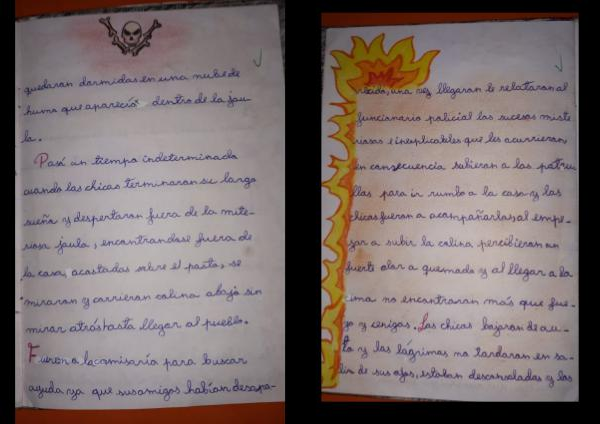 quedaran dormidas en una nube de
humo que apareció dentro de la jau-
la.
Pasó un tiempo indeterminado
cuando las chicas terminaron su largo
sueño y despertaron fuera de la miste-
riosa jaula, encontrandose fuera de
la casa, acostadas sobre el pasto, se
miraron y corrieron colina abajo sin
mirar atrás hasta llegar al pueblo.
Fueron a la comisaría para buscar
ayuda ya que sus amigos habían desapa-
recido, una vez llegaron le relataron al
funcionario policial los sucesos miste
riosos e inexplicables que les ocurrieron
en consecuencia salieron a las patru
llas para ir rumbo a la casa y las
chicas fueron a acompañarlos, al empe-
zar a subir la colina percibieron un
fuerte olor a quemado y al llegar a la
cima no encontraron más que fue-
go y cenizas. Las chicas bajaron de au-
to y las lágrimas no tardaron en sa-
lir de sus ojos, estaban desconsoladas y los